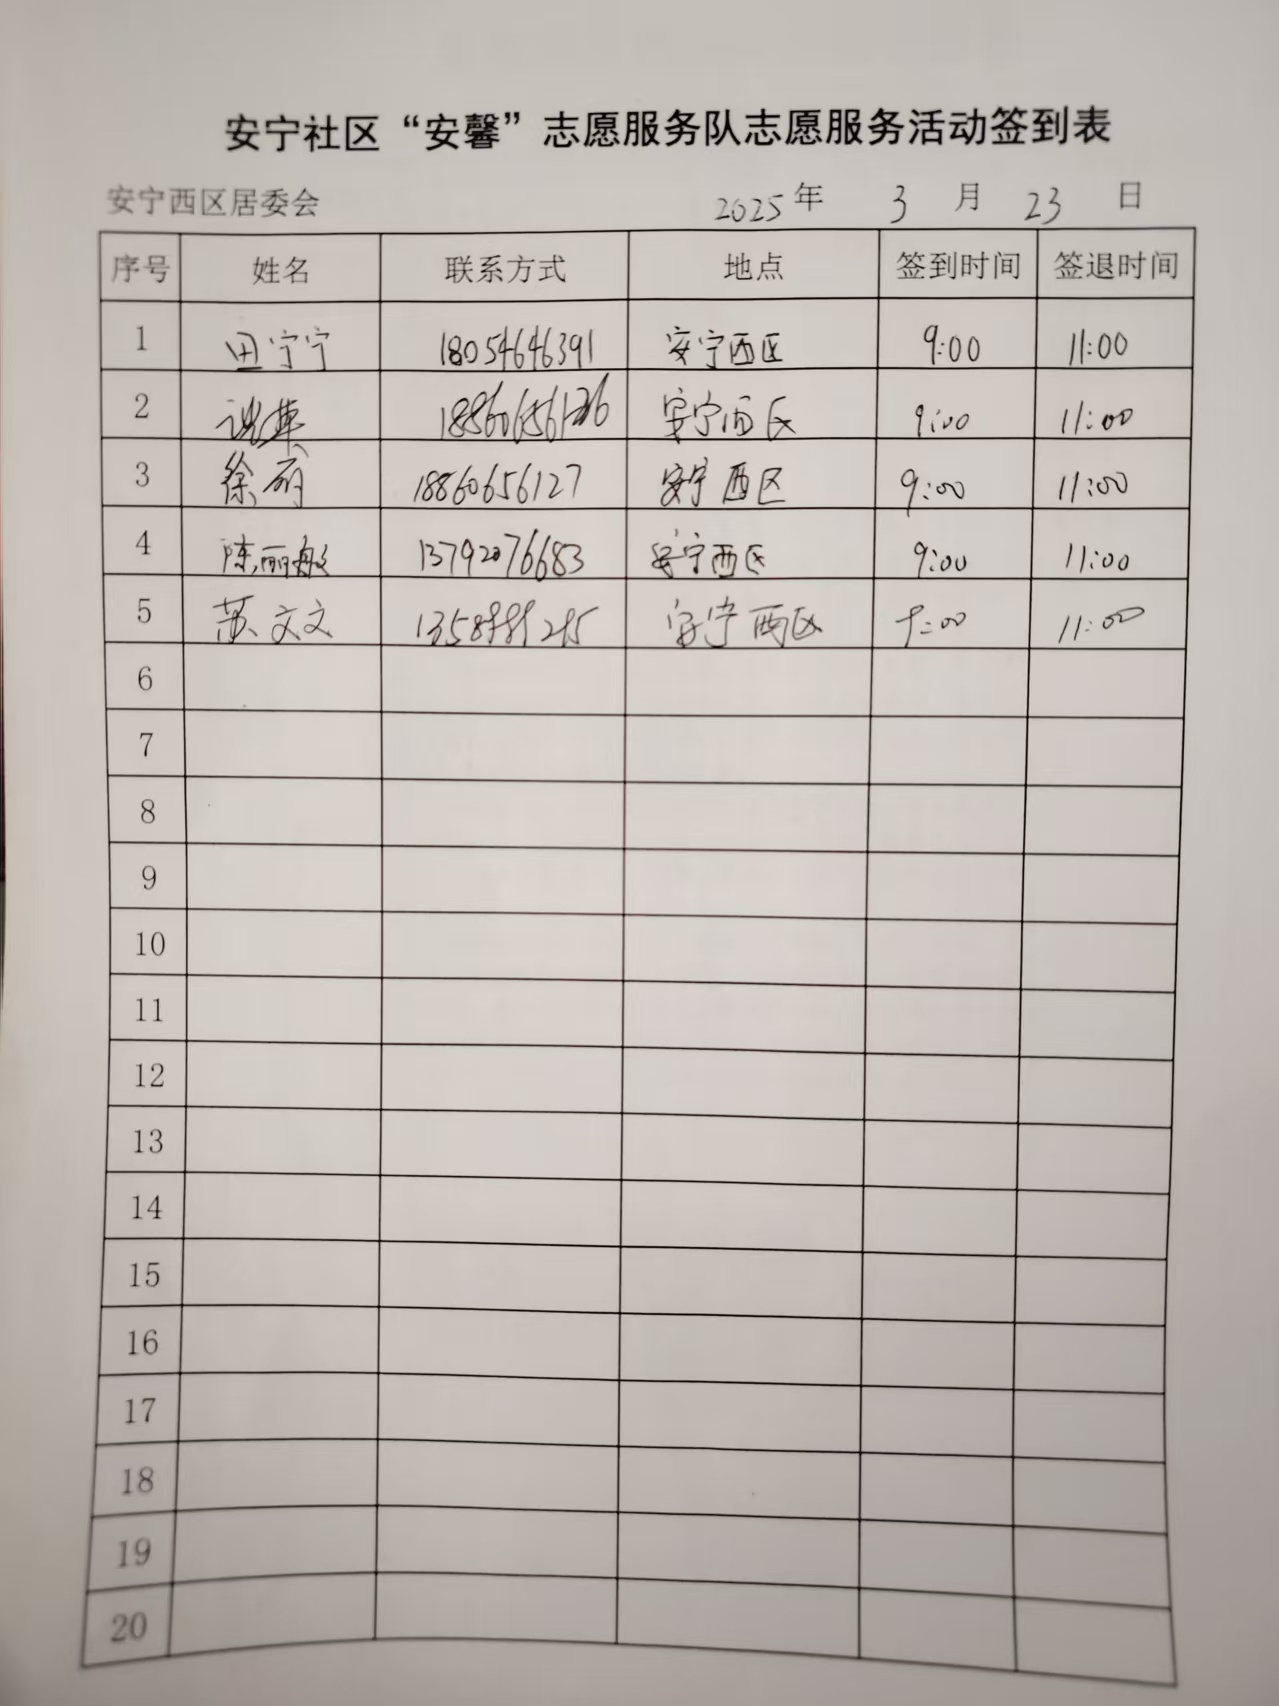 安宁社区“安馨”志愿服务队志愿服务活动签到表
安宁西区居委会 2025年 3 月 23 日
序号 姓名 联系方式 地点 签到时间 签退时间
1 田宁宁 18054646391 安宁西区 9:00 11:00
2 安宁西区 9:00 11:00
3 徐丽 18860656127 安宁西区 9:00 11:00
4 陈丽敏 13792076683 安宁西区 9:00 11:00
5 苏文文 安宁西区 9:00 11:00
6
7
8
9
10
11
12
13
14
15
16
17
18
19
20